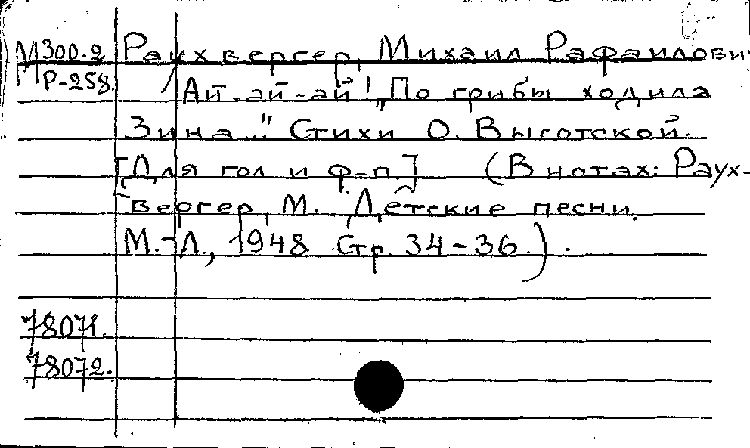 М300.2 Раухвергер, Михаил Рафаилович
Р-258. Ай-ай-ай! „По грибы ходила
Зина..." Стихи О. Высотской.
[Для гол и ф-п.] (В нотах: Раух-
вергер, М. Детские песни.
М.-Л., 1948 Стр. 34-36.).
78071.
78072.